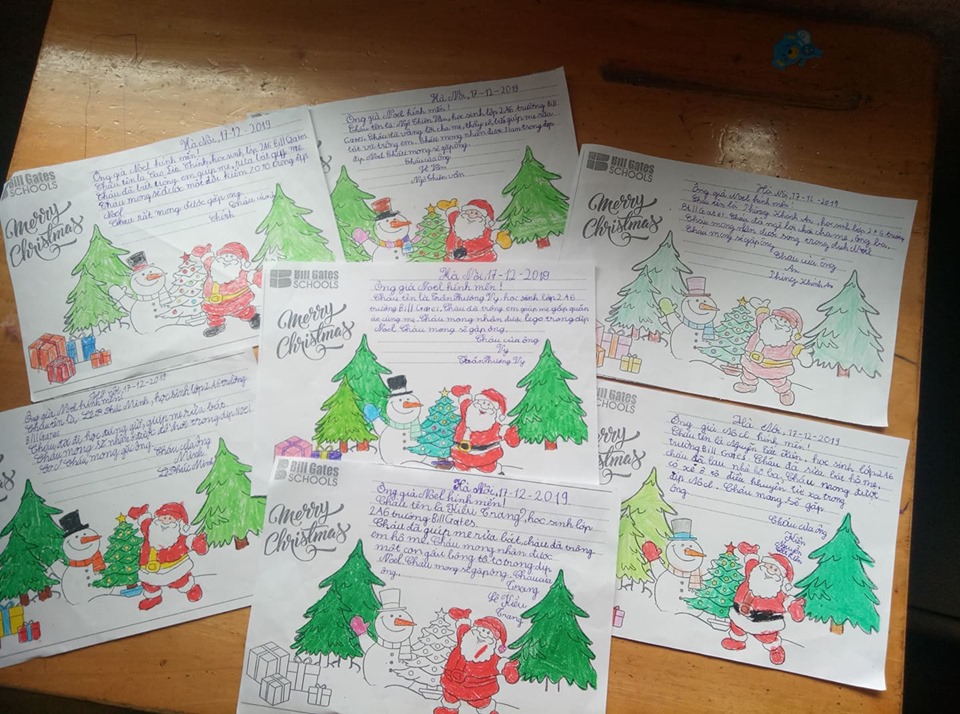 Bill Gates
SCHOOLS
Merry
Christmas
Hà Nội, 17-12-2019
Ông già Noel kính mến!
Cháu tên là Cao Gia Chính, học sinh lớp 2A6 Bill Gates
Cháu đã biết trông em, giúp mẹ rửa bát giúp mẹ.
Cháu mong sẽ được một dịp
Noel.
Cháu rất mong được gặp ông
Chính
Hà Nội, 17-12-2019
Ông già Noel kính mến!
Cháu tên là Ngô Thiên Vân, học sinh lớp 2A6 trường Bill
Gates. Cháu đã vâng lời cha mẹ, thầy cô, giúp mẹ rửa
bát và trông em. Cháu mong nhận được trong dịp
Noel. Cháu mong sẽ gặp ông.
Cháu của ông
Vân
Ngô Thiên Vân
Bill Gates
SCHOOLS
Merry
Christmas
Hà Nội, 17-12-2019
Ông già Noel kính mến!
Cháu tên là Khánh An, học sinh lớp 2A6 trường
Bill Gates. Cháu đã ngoan, cha mẹ, ông bà.
Cháu mong nhận được trong dịch
Cháu mong sẽ gặp ông
Cháu của ông
An
Khánh An
Bill Gates
SCHOOLS
Merry
Christmas
Hà Nội, 17-12-2019
Ông già Noel kính mến!
Cháu tên là Trần Phương Vy, học sinh lớp 2A6
trường Bill Gates. Cháu đã trông em giúp mẹ, gấp quần
áo cùng mẹ. Cháu mong nhận được lego trong dịp
Noel. Cháu mong sẽ gặp ông.
Cháu của ông
Vy
Trần Phương Vy
Hà Nội, 17-12-2019
Ông già Noel kính mến!
Cháu tên là Phúc Minh, học sinh lớp 2A6 trường
Bill Gates.
Cháu đi học đúng giờ, giúp mẹ rửa bát.
Cháu mong sẽ nhận được trong dịp Noel
Cháu mong gặp ông. Cháu của ông
Minh
Phúc Minh
Bill Gates
SCHOOLS
Merry
Christmas
Hà Nội, 17-12-2019
Ông già Noel kính mến!
Cháu tên là Kiều Trang, học sinh lớp
2A6 trường Bill Gates.
Cháu đã giúp mẹ rửa bát, cháu đã trông
em hộ mẹ. Cháu mong nhận được
một con gấu bông to tơ trong dịp
Noel. Cháu mong sẽ gặp ông. Cháu của
ông.
Trang
Lê Kiều
Trang
Hà Nội, 17-12-2019
Ông già Noel kính mến!
Cháu tên là Nguyễn, học sinh lớp 2A6
trường Bill Gates. Cháu đã rửa bát hộ mẹ,
cháu đã lau nhà hộ bà. Cháu mong được
có xe ô tô điều khiển từ xa trong
dịp Noel. Cháu mong sẽ gặp
ông.
Cháu của ông
Kiên
Nguyễn
Kiên